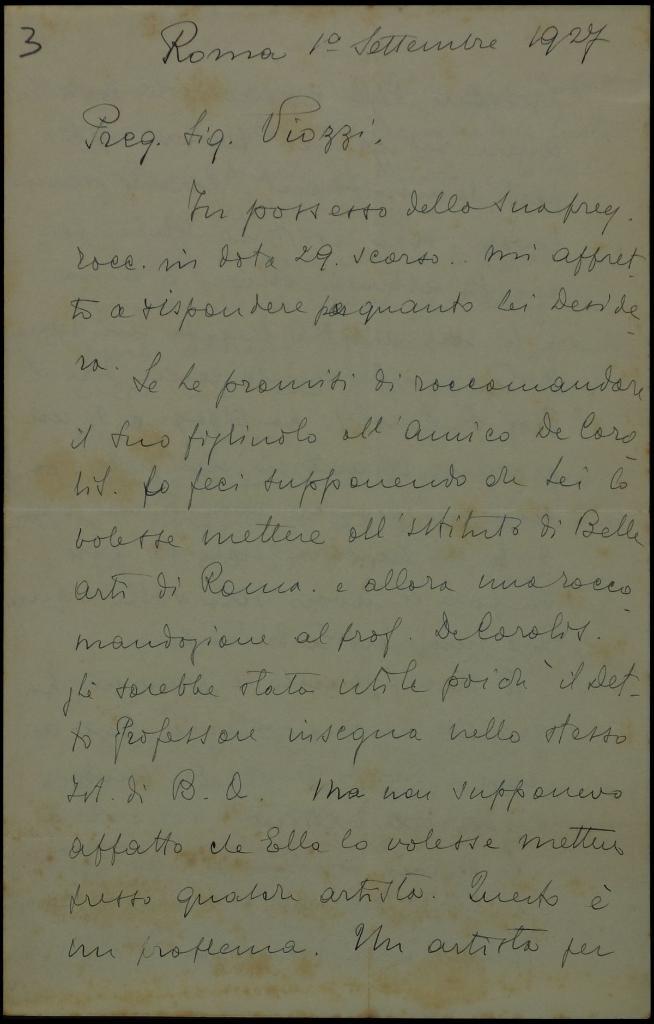 3
Roma 1º Settembre 1927
Preg. Sig. Viozzi.
In possesso della Sua preg.
racc. in data 29. scorso.. mi affret-
to a rispondere per quanto Lei deside-
ra.
Se Le promisi di raccomandare
il Suo figliuolo all'amico De Caro-
lis. lo feci supponendo che Lei lo
volesse mettere all'istituto di Belle
arti di Roma. e allora una racco-
mandazione al prof. De Carolis.
gli sarebbe stata utile poichè il det-
to Professore insegna nello stesso
Ist. di B. A. Ma non supponevo
affatto che Ella lo volesse mettere
presso qualche artista. Questo è
un problema. Un artista per